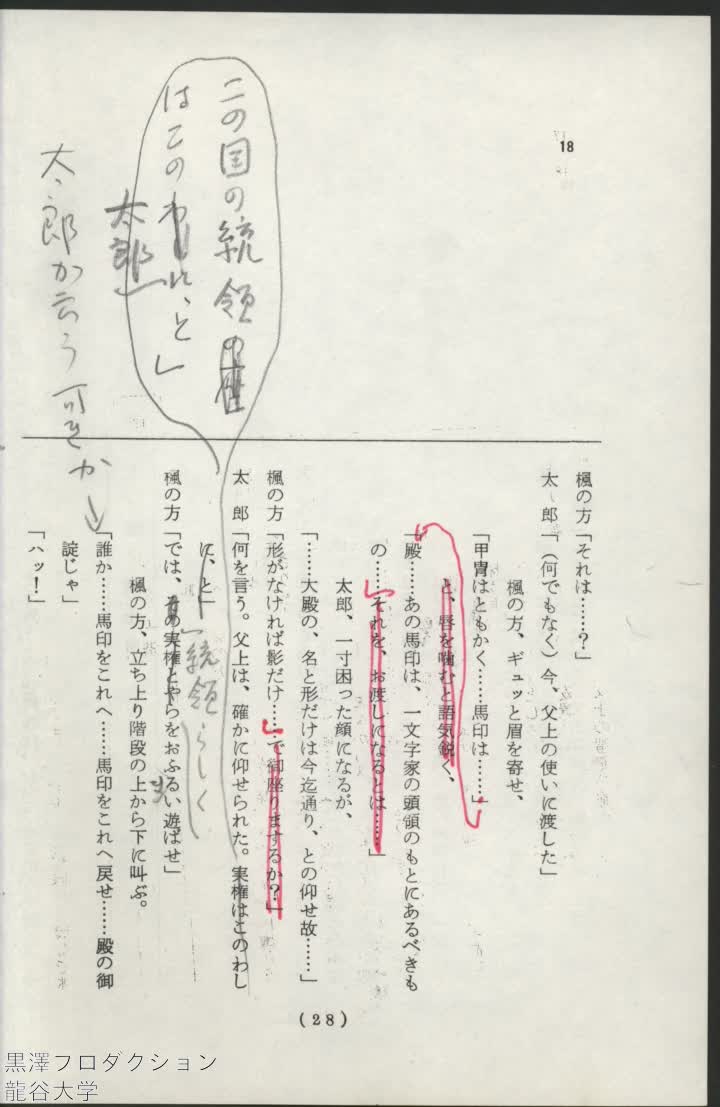 18
楓の方「それは……？」
太　郎「（何でもなく）今、父上の使いに渡した」
楓の方、ギュッと眉を寄せ、
「甲冑はともかく……馬印は……」
と、唇を噛むと語気鋭く、
「殿……あの馬印は、一文字家の頭領のもとにあるべきも
の……それを、お渡しになるとは……」
太郎、一寸困った顔になるが、
「……大殿の、名と形だけは今迄通り、との仰せ故……」
楓の方「形がなければ影だけ……で御座りまするか？」
太　郎「何を言う。父上は、確かに仰せられた。実権はこのわし
に、と」
楓の方「では、その実権とやらをおふるい遊ばせ」
楓の方、立ち上り階段の上から下に叫ぶ。
「誰か……馬印をこれへ……馬印をこれへ戻せ……殿の御
諚じゃ」
「ハッ！」
この国の統領の
はこの
太郎
と」
太郎が云う可きか
統領らしく
(28)
黒澤プロダクション
龍谷大学